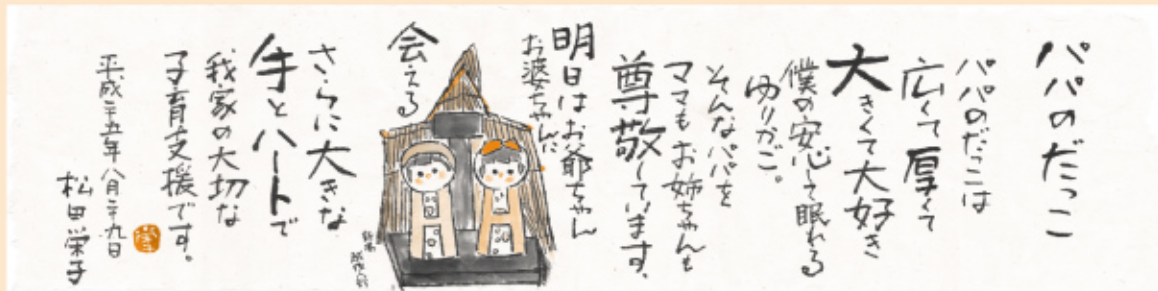 パパのだっこ
パパのだっこは
広くて厚くて
大きくて大好き
僕の安心して眠れる
ゆりかご。
そんなパパを
ママもお姉ちゃんも
尊敬しています。
明日はお爺ちゃん
お婆ちゃんに
会える
さらに大きな
手とハートで
我家の大切な
子育支援です。
平成二十五年八月二十九日
松田栄子